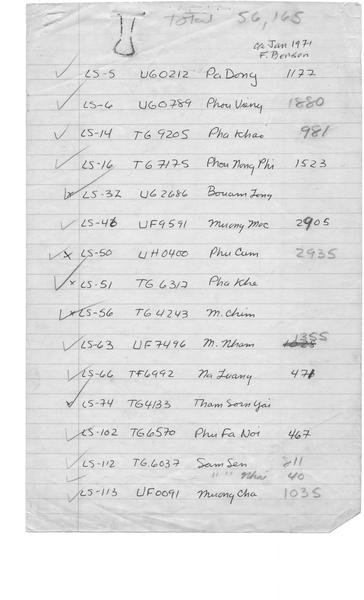 Total 56,165
c/a Jan 1971
F. Benson
LS-5 UG0212 Pa Dong 1177
LS-6 UG0789 Phou Vang 1880
LS-14 TG9205 Pha Khao 981
LS-16 TG7175 Phou Nong Phi 1523
LS-32 UG2686 Bouam Long
UF9591 Muong Moc 2905
LS-50 UH0400 Phu Cum 2935
LS-51 TG6317 Pha Khe
LS-56 TG4243 M. Chim
LS-63 UF7496 M. Nham 1355
LS-66 TF6992 Na Luang 471
LS-74 TG4133 Tham Sorn Yai
LS-102 TG6570 Phu Fa Noi 467
LS-112 TG6037 Sam Sen 211
" " Nhai 40
LS-113 UF0091 Muong Cha 1035